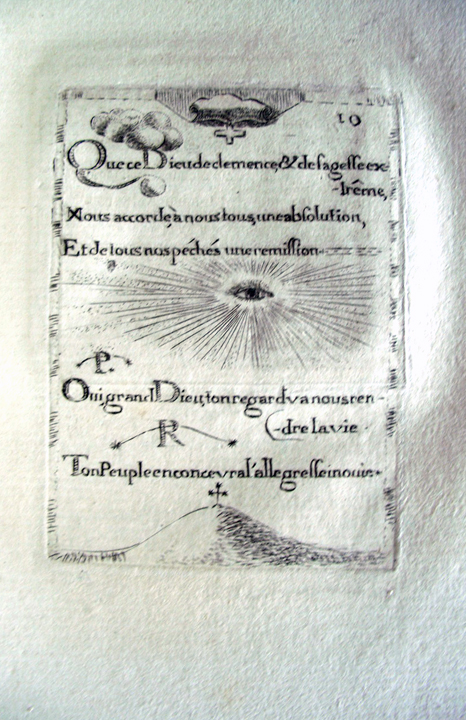 10
Que ce Dieu de clemence, & de sagesse ex-
-trême,
Nous accorde, à nous tous, une absolution,
Et de tous nos péchés une remission
P.
Oui, grand Dieu, ton regard va nous ren-
dre la vie.
R
Ton Peuple en concevra l'allegresse inouie.